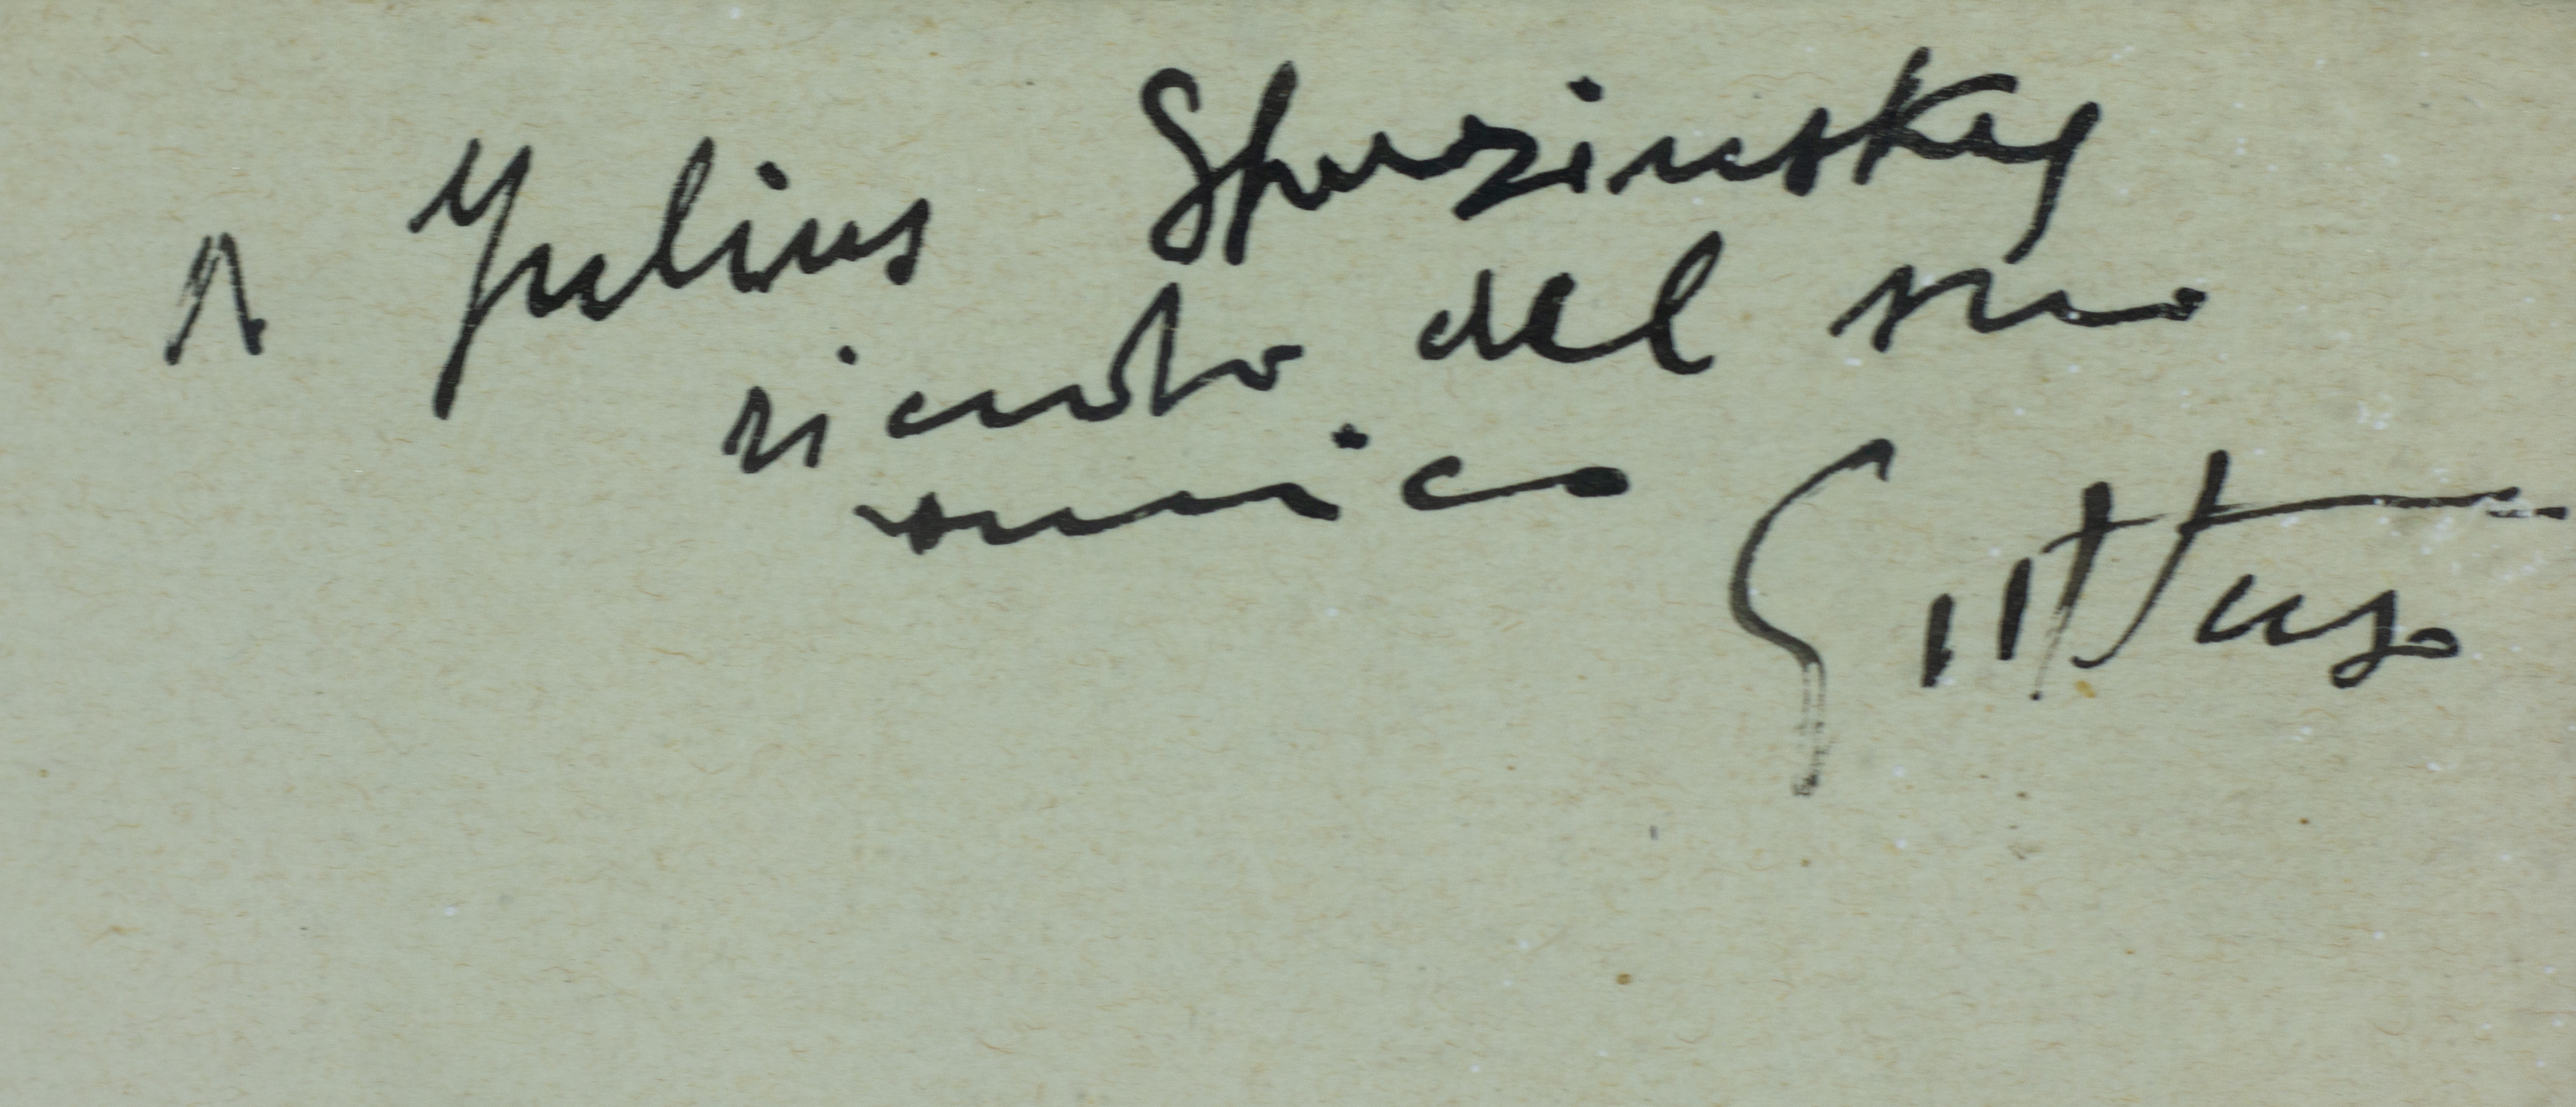 A Julius Starzinsky
ricordo del suo
amico Guttuso